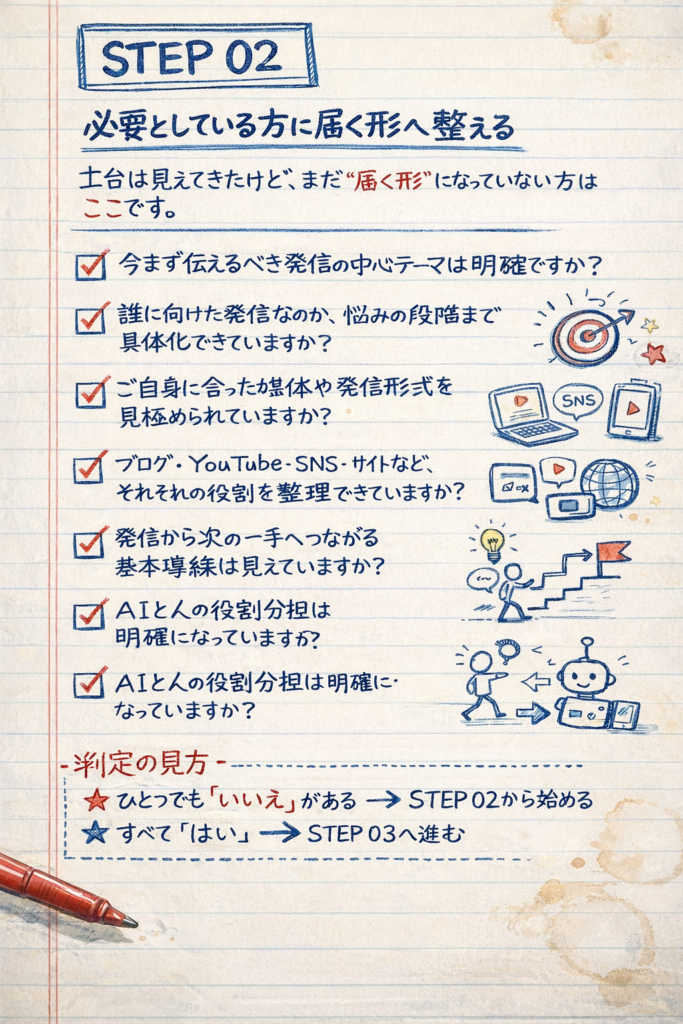 STEP 02
必要としている方に届く形へ整える
土台は見えてきたけど、まだ“届く形”になっていない方は
ここです。
今まず伝えるべき発信の中心テーマは明確ですか?
誰に向けた発信なのか、悩みの段階まで
具体化できていますか?
ご自身に合った媒体や発信形式を
見極められていますか?
SNS
ブログ・YouTube-SNS-サイトなど、
それそれの役割を整理できていますか?
発信から次の一手へつながる
基本導線は見えていますか?
AIと人の役割分担は
明確になっていますか?
AIと人の役割分担は明確に・
なっていますか?
-判定の見方-
★ ひとつでも「いいえ」がある → STEP 02から始める
★ すべて「はい」 → STEP 03へ進む